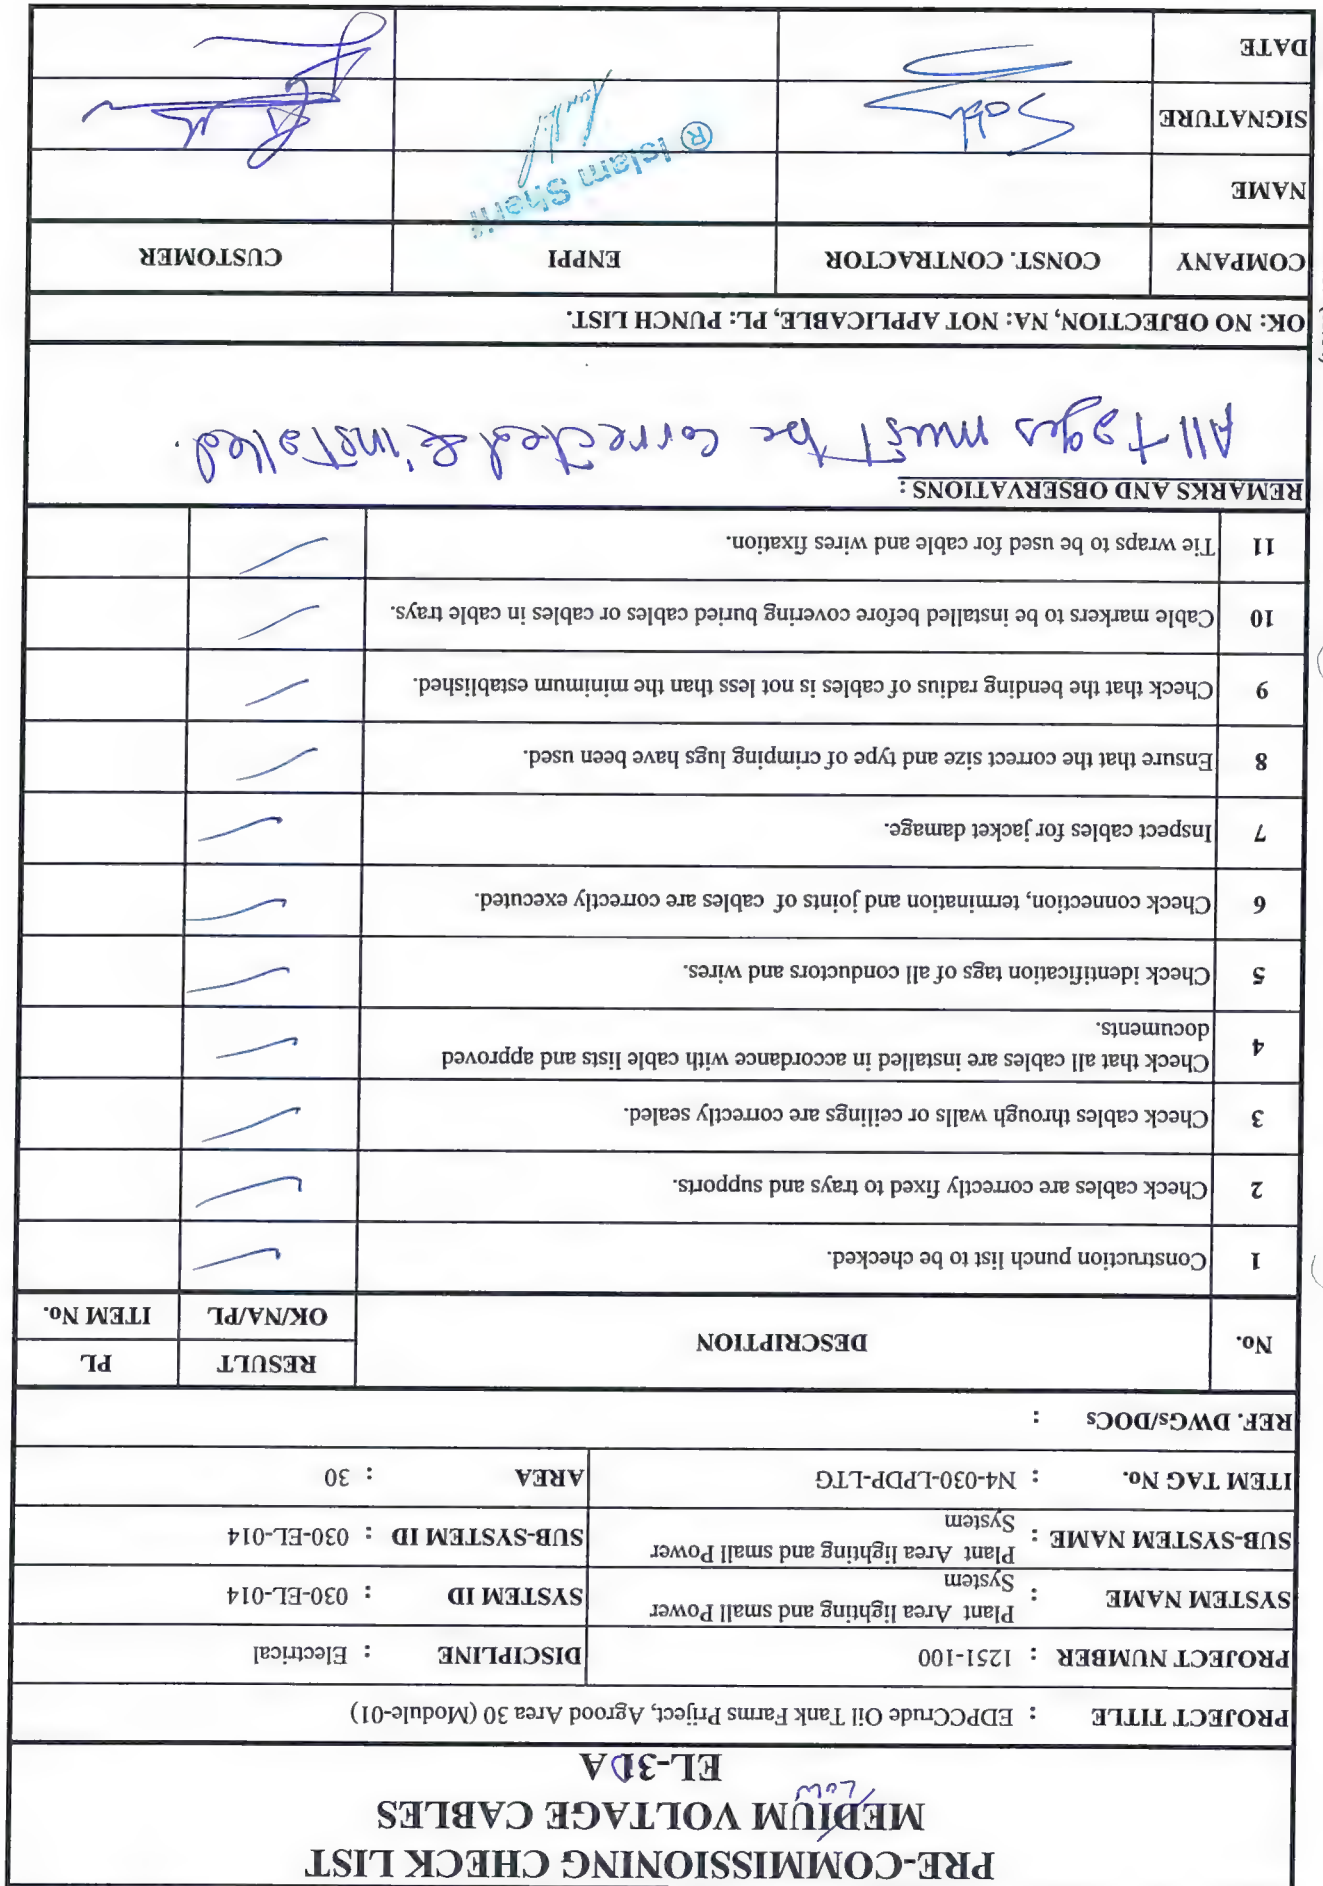 PRE-COMMISSIONING CHECK LIST
MEDIUM VOLTAGE CABLES
Low
EL-3DA
PROJECT TITLE : EDPCCrude Oil Tank Farms Priject, Agrood Area 30 (Module-01)
PROJECT NUMBER : 1251-100 DISCIPLINE : Electrical
SYSTEM NAME : Plant Area lighting and small Power System SYSTEM ID : 030-EL-014
SUB-SYSTEM NAME : Plant Area lighting and small Power System SUB-SYSTEM ID : 030-EL-014
ITEM TAG No. : N4-030-LPDP-LTG AREA : 30
REF. DWGS/DOCS :
No. DESCRIPTION RESULT OK/NA/PL PL ITEM No.
1 Construction punch list to be checked.
2 Check cables are correctly fixed to trays and supports.
3 Check cables through walls or ceilings are correctly sealed.
4 Check that all cables are installed in accordance with cable lists and approved
documents.
5 Check identification tags of all conductors and wires.
6 Check connection, termination and joints of cables are correctly executed.
7 Inspect cables for jacket damage.
8 Ensure that the correct size and type of crimping lugs have been used.
9 Check that the bending radius of cables is not less than the minimum established.
10 Cable markers to be installed before covering buried cables or cables in cable trays.
11 Tie wraps to be used for cable and wires fixation.
REMARKS AND OBSERVATIONS :
All tages must be corrected & installed.
OK: NO OBJECTION, NA: NOT APPLICABLE, PL: PUNCH LIST.
COMPANY CONST. CONTRACTOR ENPPI CUSTOMER
NAME
® Islam Sherif
SIGNATURE
DATE